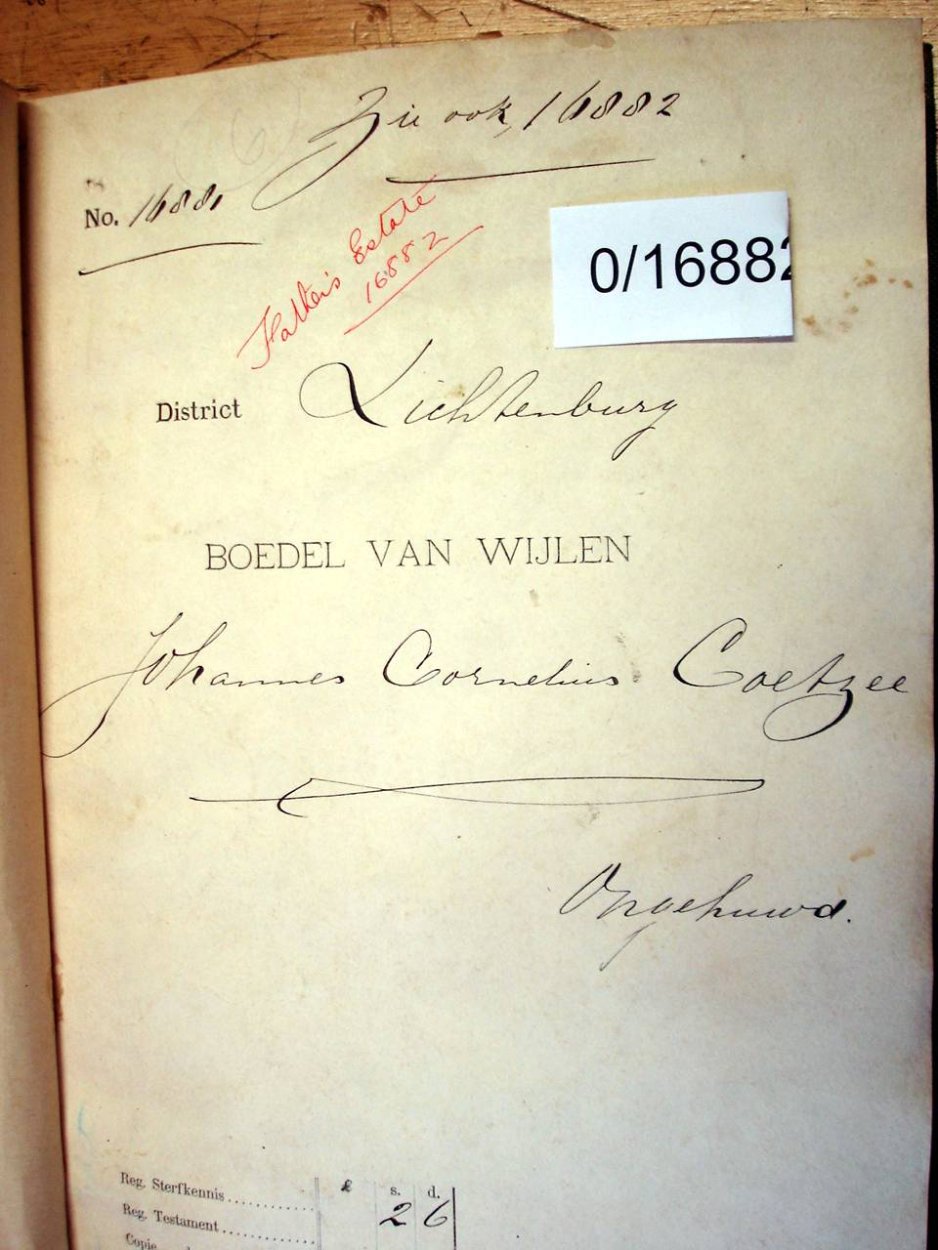 Zie ook, 16882
No. 16881
Father's Estate
16882
0/16882
District Lichtenburg
BOEDEL VAN WIJLEN
Johannes Cornelius Coetzee
Ongehuwd.
£ s. d.
Reg. Sterfkennis
Reg. Testament 2 6
Copie